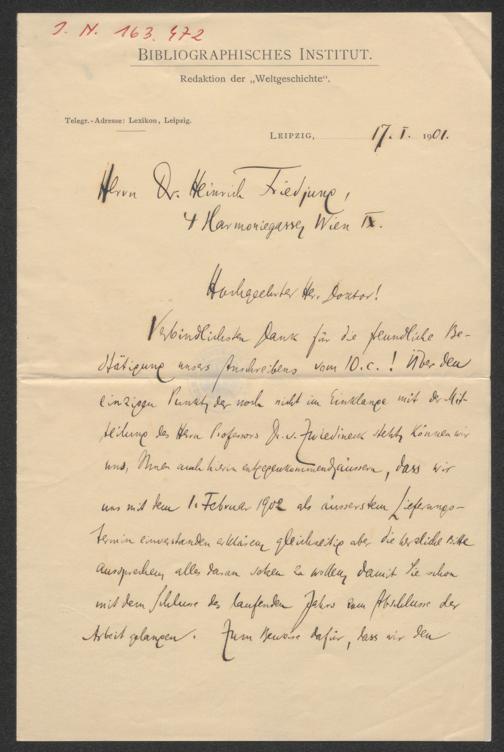 J. N. 163.472
BIBLIOGRAPHISCHES INSTITUT.
Redaktion der „Weltgeschichte“.
Telegr.-Adresse: Lexikon, Leipzig.
LEIPZIG, 17. I. 1901.
Herrn Dr. Heinrich Friedjung,
4 Harmoniegasse, Wien IX.
Hochgeehrter Herr Doktor!
Verbindlichsten Dank für die freundliche Be-
stätigung unsers Anschreibens vom 10. c.! Über den
einzigen Punkt, der noch nicht im Einklange mit der Mit-
teilung des Herrn Professors Dr. v. Zwiedineck steht, können wir
uns, Ihnen auch hierin entgegenkommend, äussern, dass wir
uns mit dem 1. Februar 1902 als äusserstem Lieferungs-
termin einverstanden erklären, gleichzeitig aber die herzliche Bitte
aussprechen, alles daran setzen zu wollen, damit Sie schon
mit dem Schlusse des laufenden Jahres zum Abschlusse der
Arbeit gelangen. Zum Beweise dafür, dass wir den